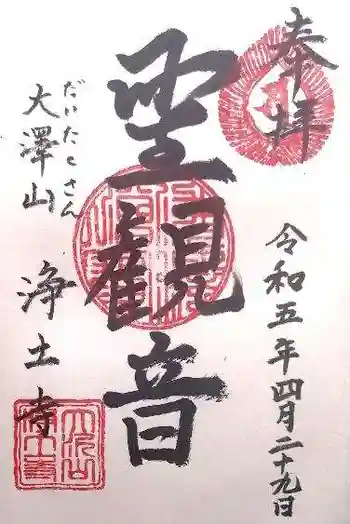 奉拝
令和五年四月二十九日
聖観音
だいたくさん
大澤山
浄土寺